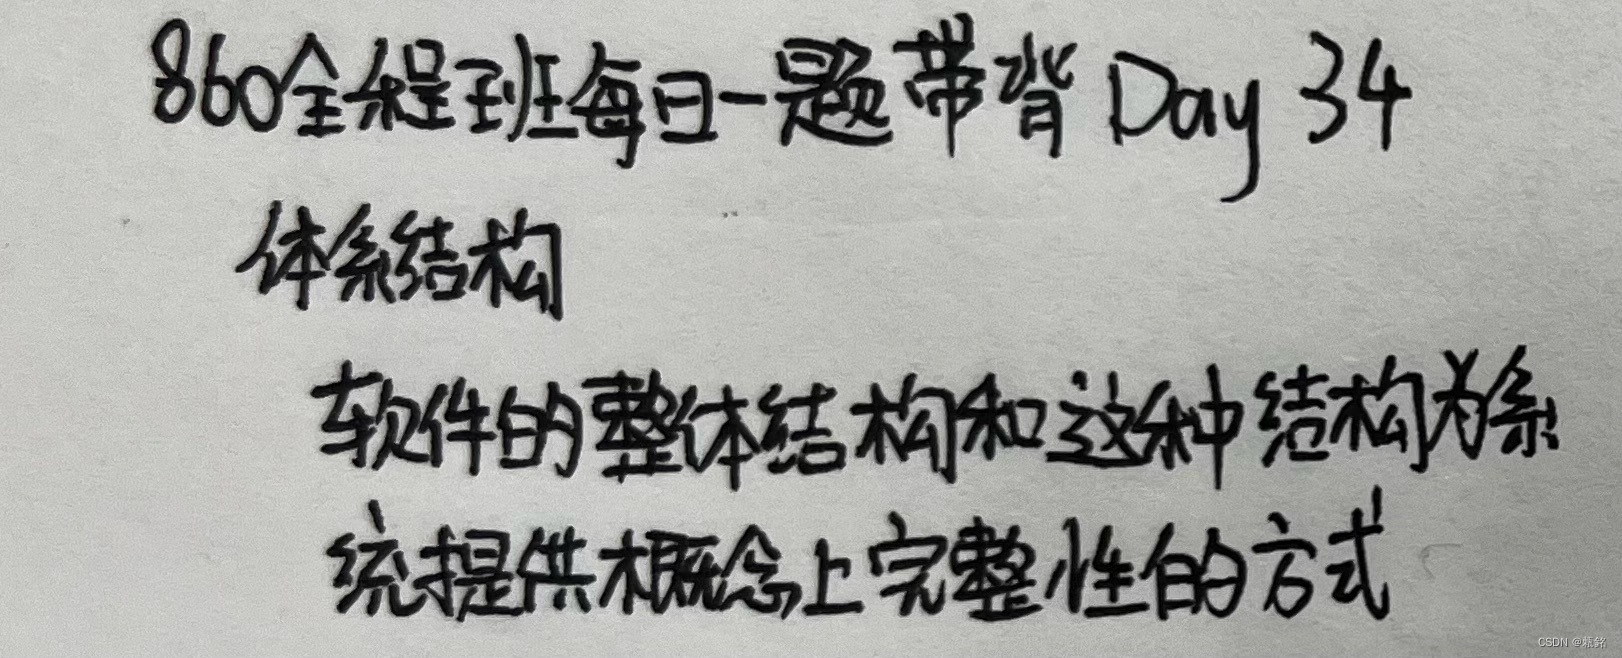 860全程班每日一题带背 Day 34
体系结构
软件的整体结构和这种结构为系
统提供概念上完整性的方式
CSDN @甄銘